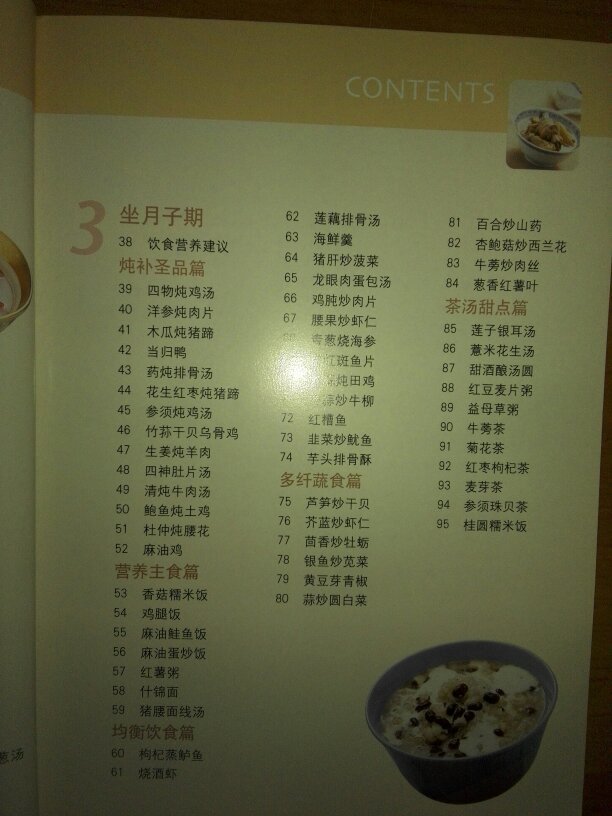 CONTENTS
3 坐月子期
38 饮食营养建议
炖补圣品篇
39 四物炖鸡汤
40 洋参炖肉片
41 木瓜炖猪蹄
42 当归鸭
43 药炖排骨汤
44 花生红枣炖猪蹄
45 参须炖鸡汤
46 竹荪干贝乌骨鸡
47 生姜炖羊肉
48 四神肚片汤
49 清炖牛肉汤
50 鲍鱼炖土鸡
51 杜仲炖腰花
52 麻油鸡
营养主食篇
53 香菇糯米饭
54 鸡腿饭
55 麻油鲑鱼饭
56 麻油蛋炒饭
57 红薯粥
58 什锦面
59 猪腰面线汤
均衡饮食篇
60 枸杞蒸鲈鱼
61 烧酒虾
62 莲藕排骨汤
63 海鲜羹
64 猪肝炒菠菜
65 龙眼肉蛋包汤
66 鸡肫炒肉片
67 腰果炒虾仁
葱烧海参
斑鱼片
炖田鸡
炒牛柳
72 红糟鱼
73 韭菜炒鱿鱼
74 芋头排骨酥
多纤蔬食篇
75 芦笋炒干贝
76 芥蓝炒虾仁
77 茴香炒牡蛎
78 银鱼炒苋菜
79 黄豆芽青椒
80 蒜炒圆白菜
81 百合炒山药
82 杏鲍菇炒西兰花
83 牛蒡炒肉丝
84 葱香红薯叶
茶汤甜点篇
85 莲子银耳汤
86 薏米花生汤
87 甜酒酿汤圆
88 红豆麦片粥
89 益母草粥
90 牛蒡茶
91 菊花茶
92 红枣枸杞茶
93 麦芽茶
94 参须珠贝茶
95 桂圆糯米饭
葱汤